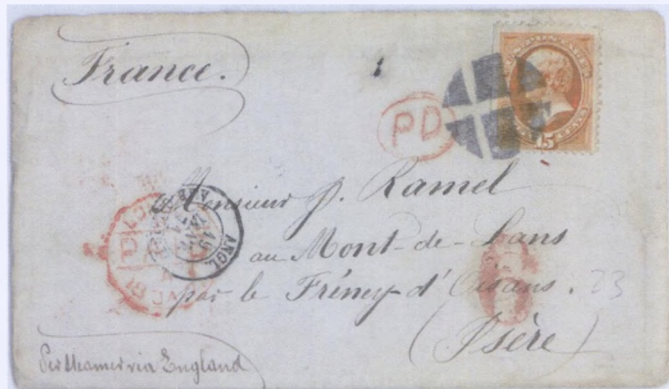 France.
PD
15
Monsieur p. Ramel
au Mont-de-Lans
par le Fréney-d'Oisans.
23
(Isère)
Per steamer via England
ANGL.